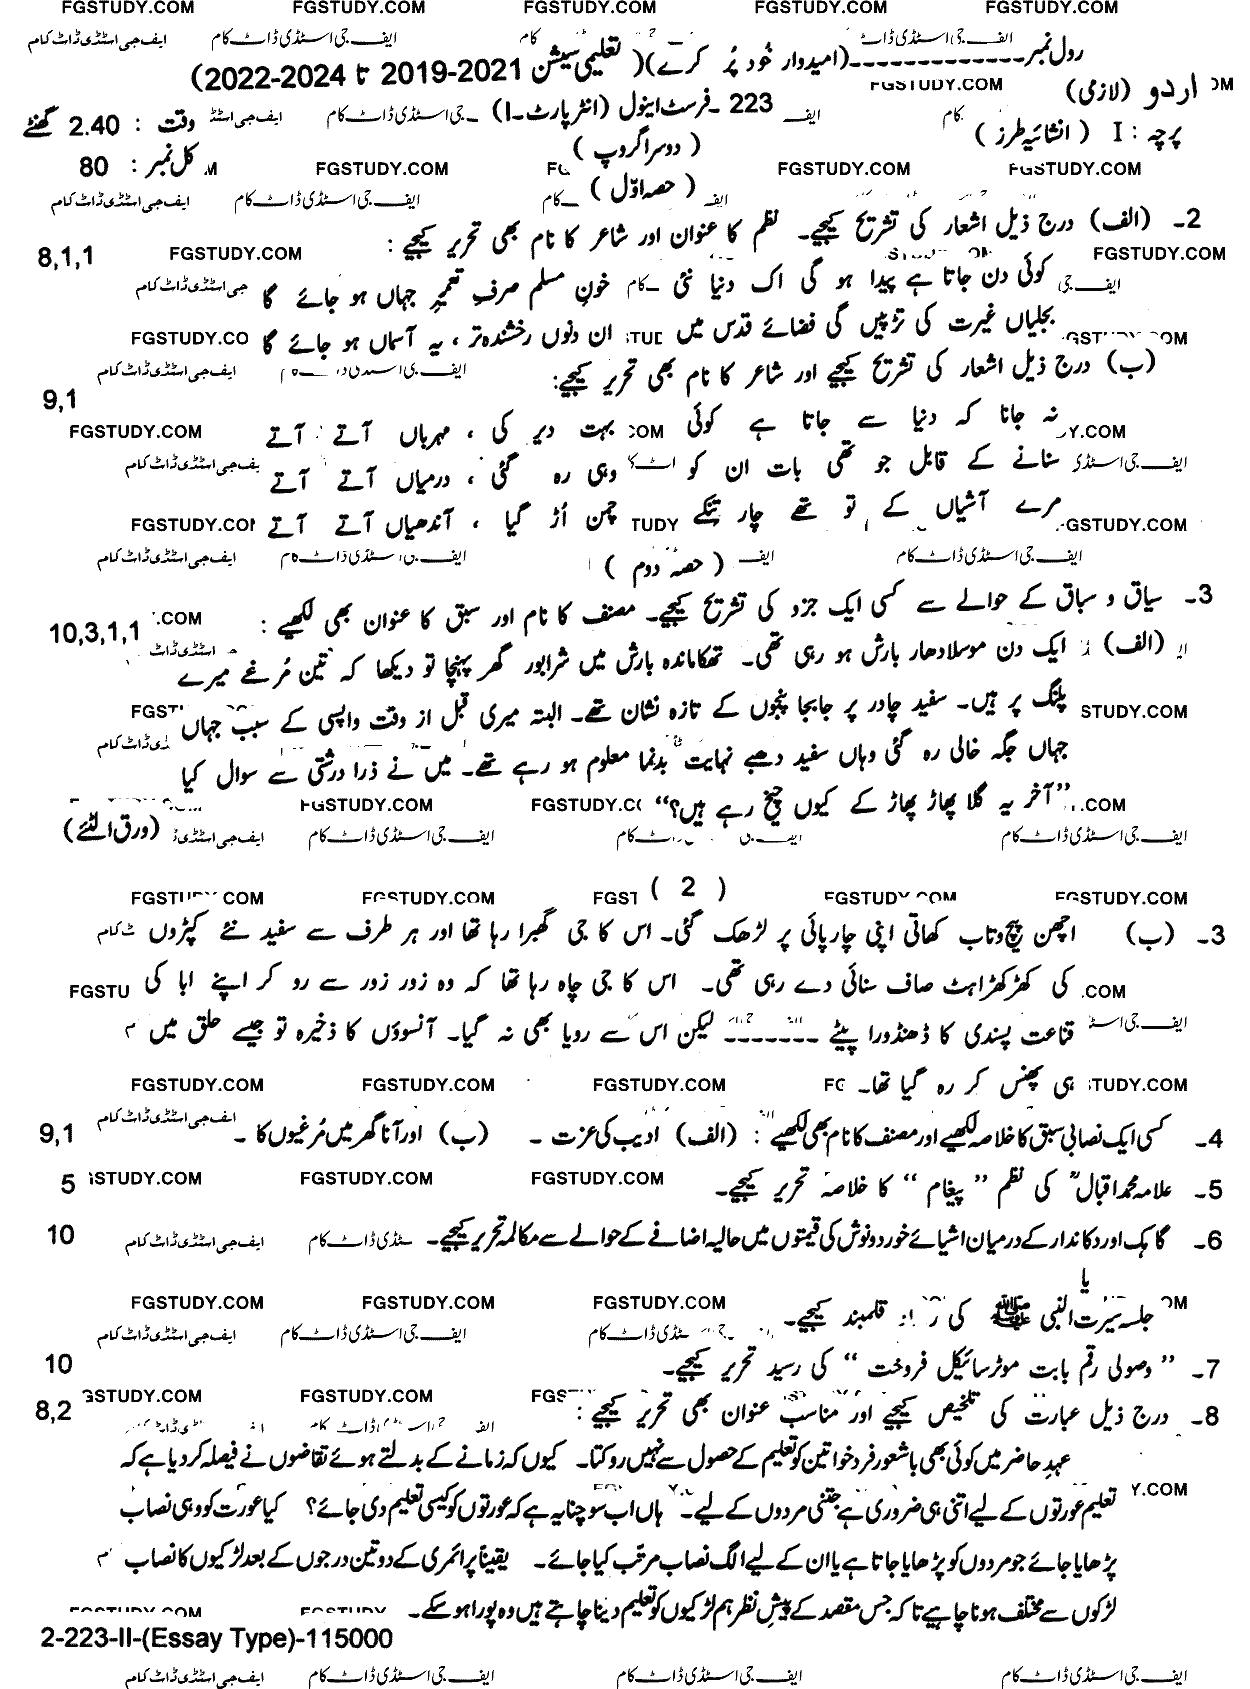 FGSTUDY.COM FGSTUDY.COM FGSTUDY.COM FGSTUDY.COM FGSTUDY.COM
رول نمبر ------------(امیدوار خود پُر کرے)( تعلیمی سیشن 2021-2019 تا 2024-2022)
اردو (لازمی) 223 ۔فرسٹ ایئول (انٹر پارٹ۔I) ۔ وقت : 2.40 گھنٹے
پرچہ : I ( انشائیہ طرز ) ( دوسرا گروپ ) کل نمبر : 80
FGSTUDY.COM FGSTUDY.COM FGSTUDY.COM
( حصہ اوّل )
2۔ (الف) درج ذیل اشعار کی تشریح کیجیے۔ نظم کا عنوان اور شاعر کا نام بھی تحریر کیجیے : 8,1,1
کوئی دن جاتا ہے پیدا ہو گی اک دنیا نئی خونِ مسلم صرفِ تعمیرِ جہاں ہو جائے گا
بجلیاں غیرت کی تڑپیں گی فضائے قدس میں ان دنوں رخشندہ تر ، یہ آسماں ہو جائے گا
(ب) درج ذیل اشعار کی تشریح کیجیے اور شاعر کا نام بھی تحریر کیجیے: 9,1
نہ جانا کہ دنیا سے جاتا ہے کوئی بہت دیر کی ، مہرباں آتے آتے
سنانے کے قابل جو تھی بات ان کو وہی رہ گئی ، درمیاں آتے آتے
مرے آشیاں کے تو تھے چار تنکے چمن اُڑ گیا ، آندھیاں آتے آتے
( حصہ دوم )
3۔ سیاق و سباق کے حوالے سے کسی ایک جزو کی تشریح کیجیے۔ مصنف کا نام اور سبق کا عنوان بھی لکھیے : 10,3,1,1
(الف) ایک دن موسلادھار بارش ہو رہی تھی۔ تھکا ماندہ بارش میں شرابور گھر پہنچا تو دیکھا کہ تین مُرغے میرے
پلنگ پر ہیں۔ سفید چادر پر جابجا پنجوں کے تازہ نشان تھے۔ البتہ میری قبل از وقت واپسی کے سبب جہاں
جہاں جگہ خالی رہ گئی وہاں سفید دھبے نہایت بدنما معلوم ہو رہے تھے۔ میں نے ذرا درشتی سے سوال کیا
”آخر یہ گلا پھاڑ پھاڑ کے کیوں چیخ رہے ہیں؟“
(ورق الٹئے)
( 2 )
3۔ (ب) اچھن پیچ وتاب کھاتی اپنی چارپائی پر لڑھک گئی۔ اس کا جی گھبرا رہا تھا اور ہر طرف سے سفید نئے کپڑوں
کی کھڑکھڑاہٹ صاف سنائی دے رہی تھی۔ اس کا جی چاہ رہا تھا کہ وہ زور زور سے رو کر اپنے ابا کی
قناعت پسندی کا ڈھنڈورا پیٹے ------- لیکن اس سے رویا بھی نہ گیا۔ آنسوؤں کا ذخیرہ تو جیسے حلق میں
ہی پھنس کر رہ گیا تھا۔
4۔ کسی ایک نصابی سبق کا خلاصہ لکھیے اور مصنف کا نام بھی لکھیے : (الف) ادیب کی عزت ۔ (ب) اور آنا گھر میں مُرغیوں کا ۔ 9,1
5۔ علامہ محمد اقبالؒ کی نظم ” پیغام “ کا خلاصہ تحریر کیجیے۔ 5
6۔ گاہک اور دکاندار کے درمیان اشیائے خوردونوش کی قیمتوں میں حالیہ اضافے کے حوالے سے مکالمہ تحریر کیجیے۔ 10
یا
جلسہ سیرت النبی ﷺ کی قلمبند کیجیے۔
7۔ ” وصولی رقم بابت موٹرسائیکل فروخت “ کی رسید تحریر کیجیے۔ 10
8۔ درج ذیل عبارت کی تلخیص کیجیے اور مناسب عنوان بھی تحریر کیجیے : 8,2
عہدِ حاضر میں کوئی بھی باشعور فرد خواتین کو تعلیم کے حصول سے نہیں روکتا۔ کیوں کہ زمانے کے بدلتے ہوئے تقاضوں نے فیصلہ کر دیا ہے کہ
تعلیم عورتوں کے لیے اتنی ہی ضروری ہے جتنی مردوں کے لیے۔ ہاں اب سوچنا یہ ہے کہ عورتوں کو کیسی تعلیم دی جائے؟ کیا عورت کو وہی نصاب
پڑھایا جائے جو مردوں کو پڑھایا جاتا ہے یا ان کے لیے الگ نصاب مرتب کیا جائے۔ یقیناً پرائمری کے دو تین درجوں کے بعد لڑکیوں کا نصاب
لڑکوں سے مختلف ہونا چاہیے تاکہ جس مقصد کے پیشِ نظر ہم لڑکیوں کو تعلیم دینا چاہتے ہیں وہ پورا ہو سکے۔
2-223-II-(Essay Type)-115000
ایف جی اسٹڈی ڈاٹ کام ایف جی اسٹڈی ڈاٹ کام ایف جی اسٹڈی ڈاٹ کام ایف جی اسٹڈی ڈاٹ کام